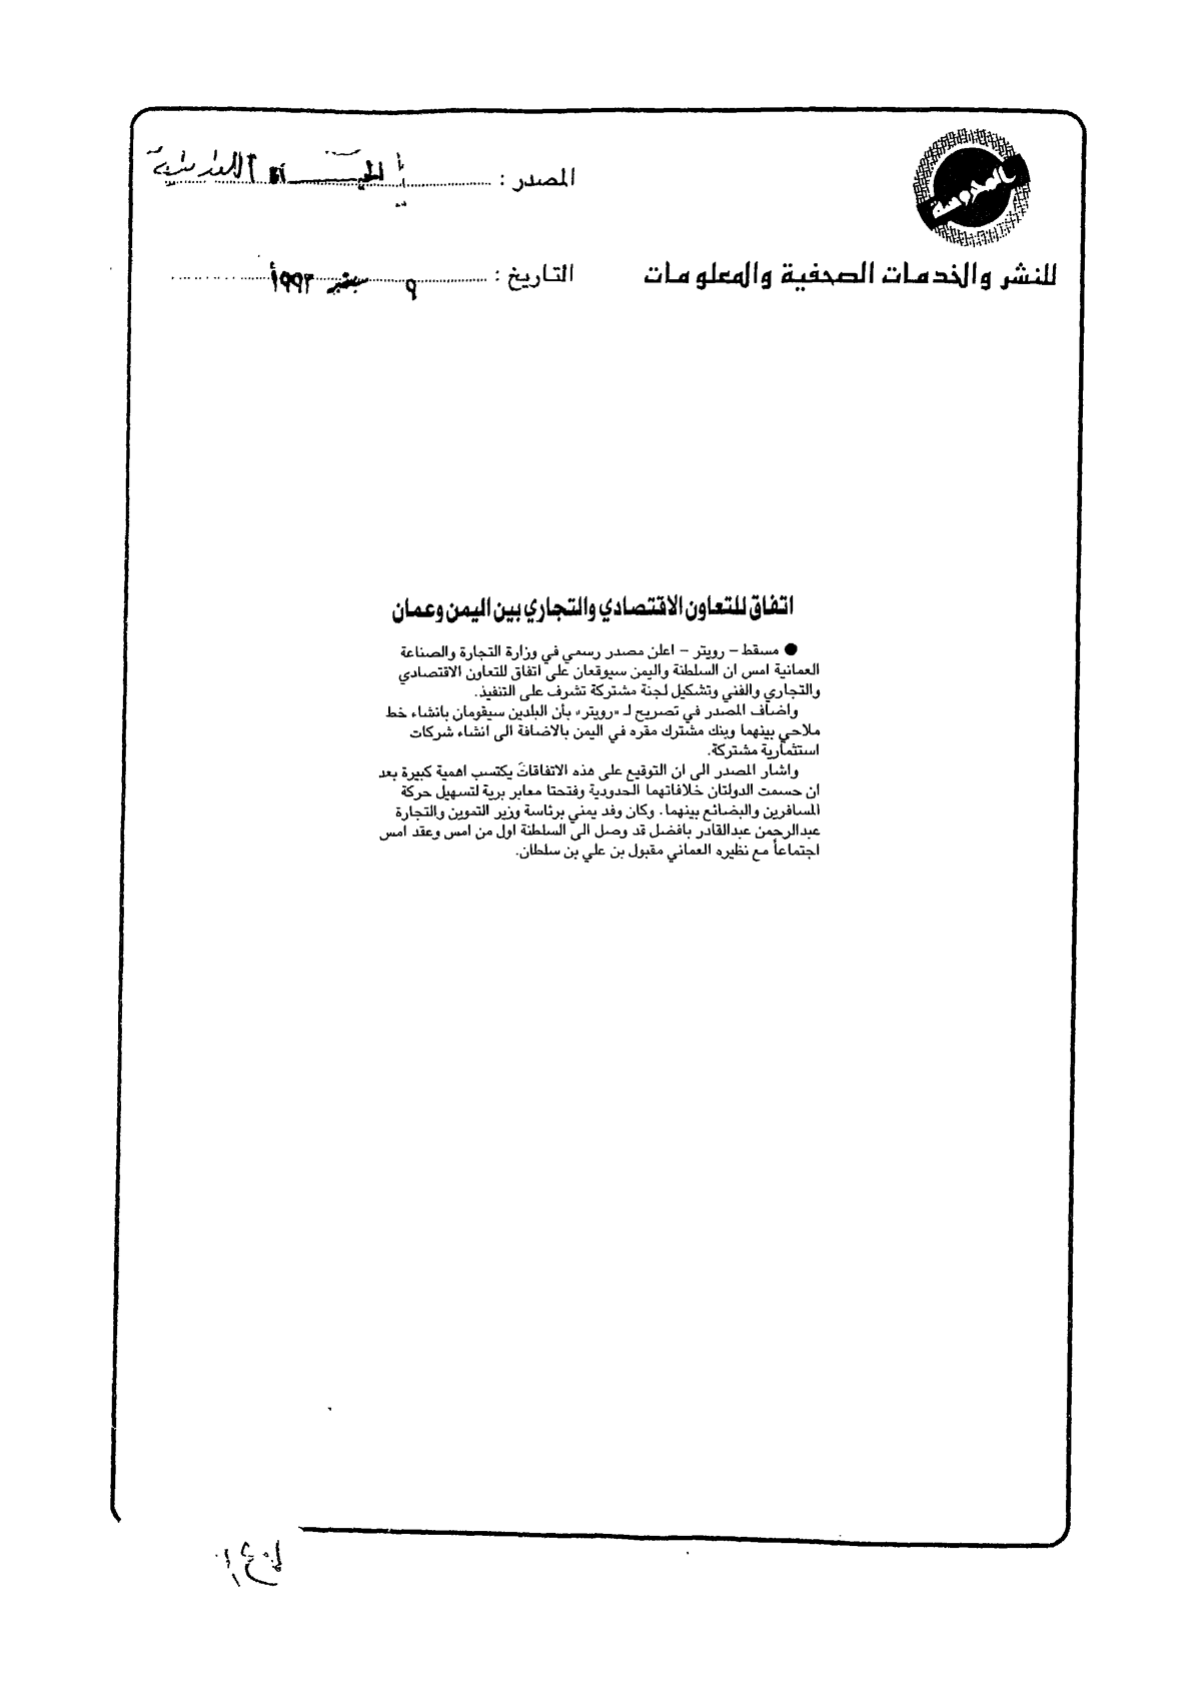 المحروسة
للنشر والخدمات الصحفية والمعلومات
المصدر : الحياة اللندنية
التاريخ : ٩ سبتمبر ١٩٩٣
اتفاق للتعاون الاقتصادي والتجاري بين اليمن وعمان
● مسقط – رويتر – اعلن مصدر رسمي في وزارة التجارة والصناعة
العمانية امس ان السلطنة واليمن سيوقعان على اتفاق للتعاون الاقتصادي
والتجاري والفني وتشكيل لجنة مشتركة تشرف على التنفيذ.
واضاف المصدر في تصريح لـ «رويتر» بأن البلدين سيقومان بانشاء خط
ملاحي بينهما وبنك مشترك مقره في اليمن بالاضافة الى انشاء شركات
استثمارية مشتركة.
واشار المصدر الى ان التوقيع على هذه الاتفاقات يكتسب اهمية كبيرة بعد
ان حسمت الدولتان خلافاتهما الحدودية وفتحتا معابر برية لتسهيل حركة
المسافرين والبضائع بينهما. وكان وفد يمني برئاسة وزير التموين والتجارة
عبدالرحمن عبدالقادر بافضل قد وصل الى السلطنة اول من امس وعقد امس
اجتماعاً مع نظيره العماني مقبول بن علي بن سلطان.